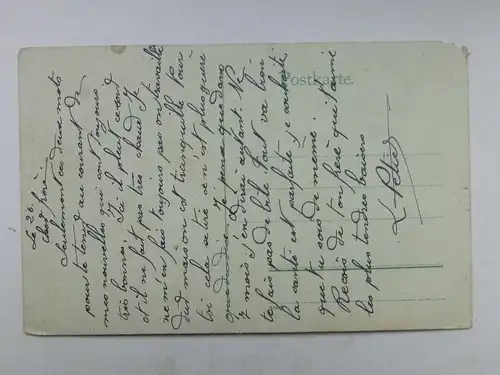 Postkarte.
le 26.
Cher frère
Seulement ces deux mots
pour te tenir au courant de
mes nouvelles qui sont toujours
très bonnes. Ici il pleut
et il ne fait pas très chaud. Je
ne m'en fais toujours pas
maison est tranquille pour
toi cela se tire ce n'est plus guère
Je pense que dans
7 mois j'en dirai autant. Ne
te fais pas de bile tout va bien
la santé est parfaite, je souhaite
que tu sois de même.
Reçois de ton frère qui t'aime
les plus tendres baisers